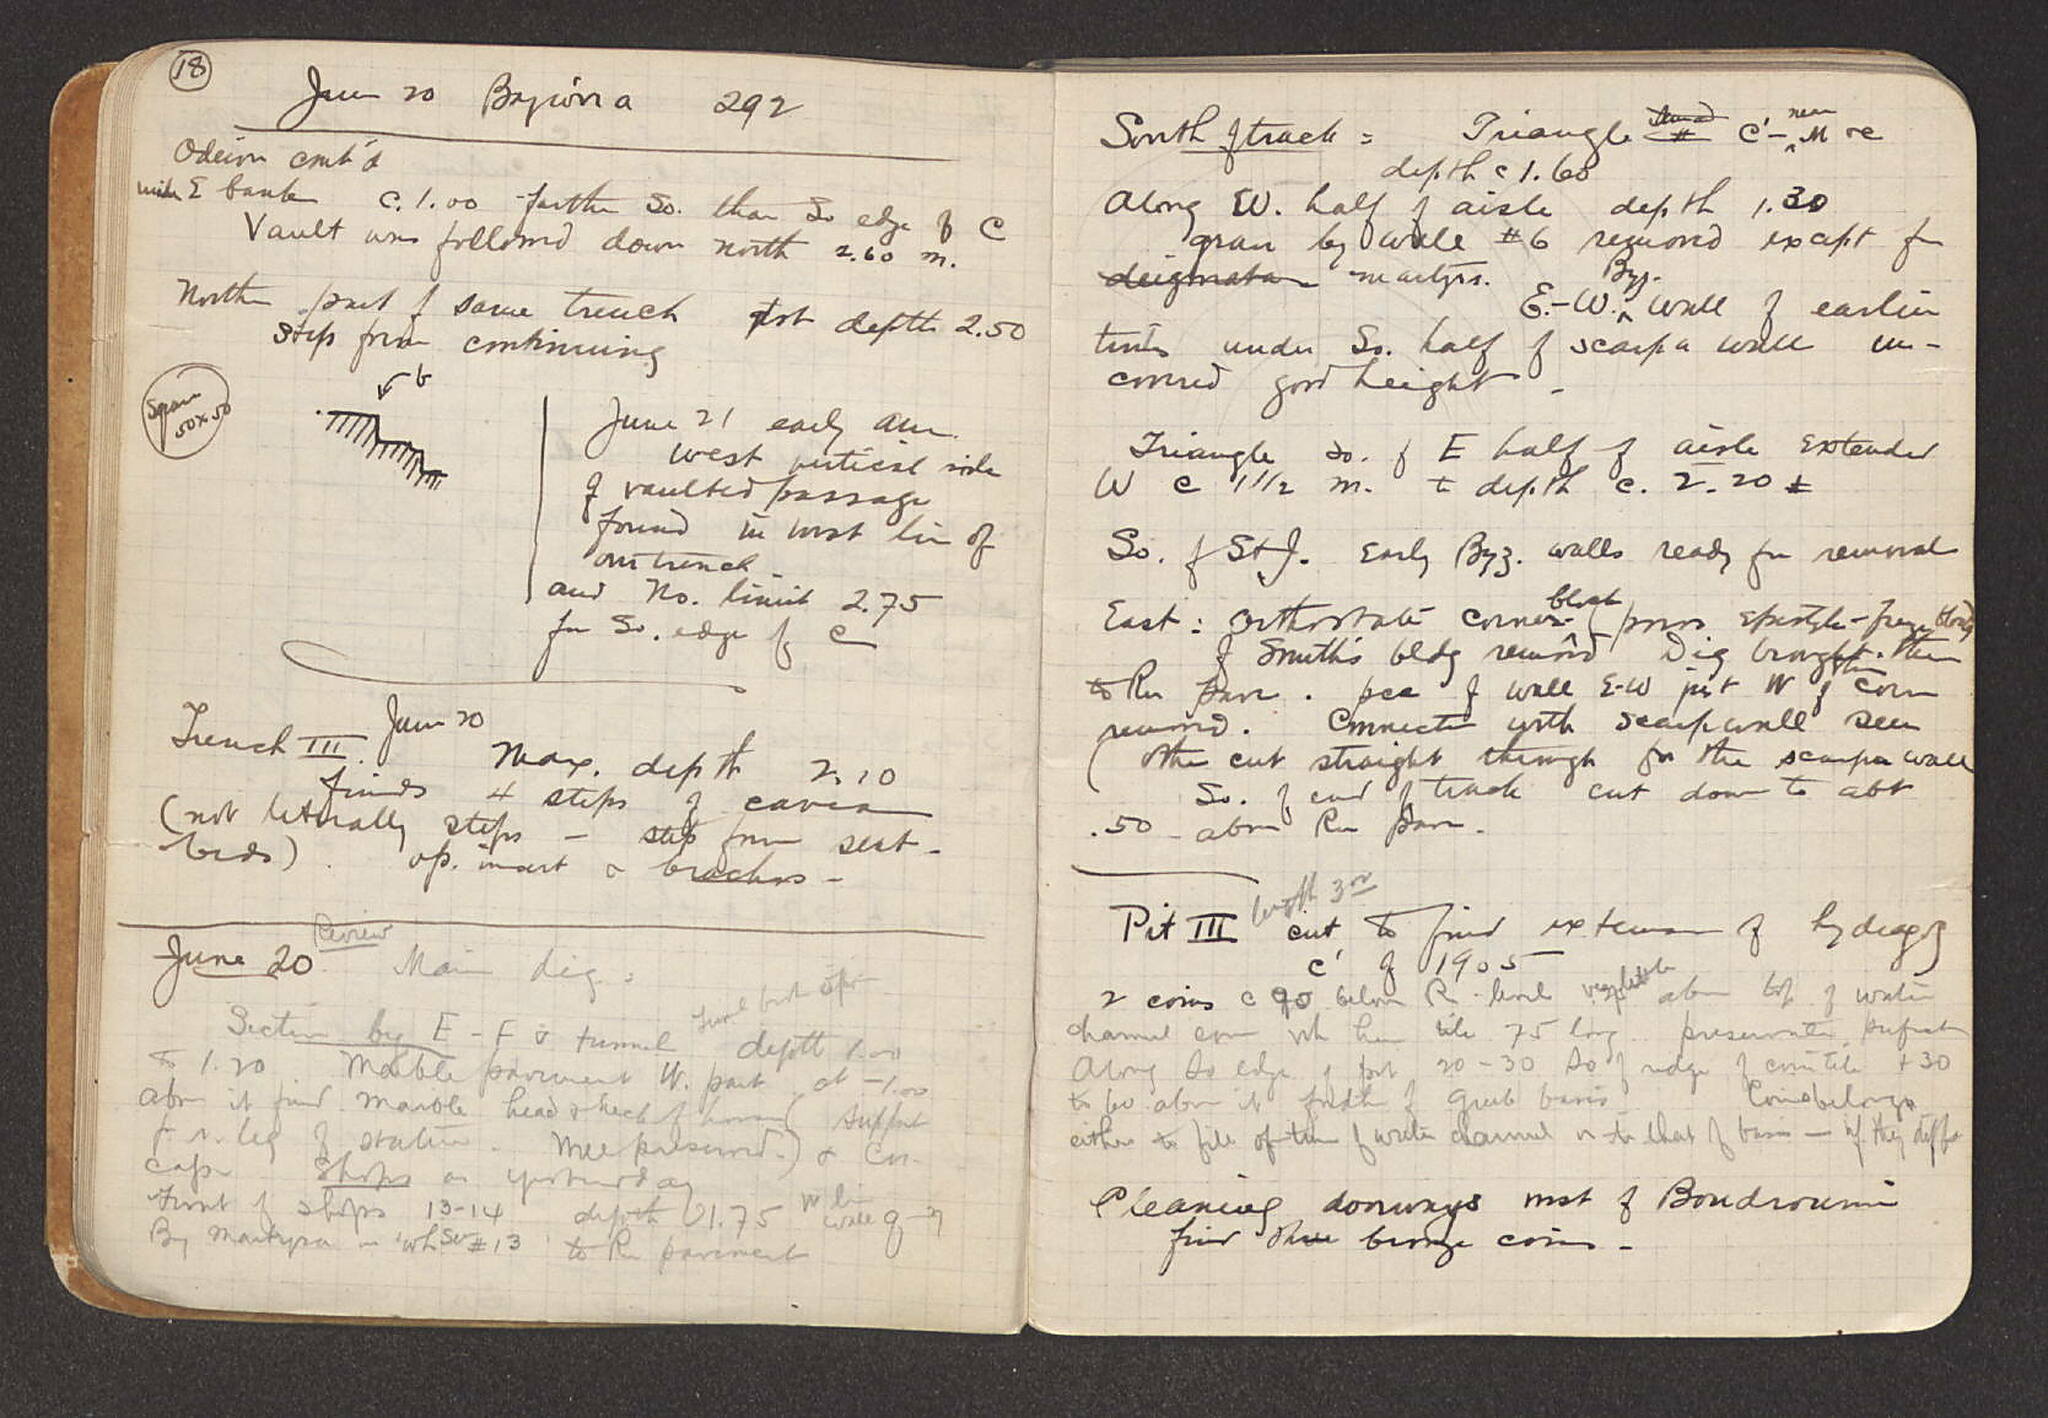 18
June 20 292
Odeion cont'd
with E bank c. 1.00 farther So. than So edge of C
Vault was followed down north 2.60 m.
Northern part of same trench depth 2.50
steps from continuing
50 x 50
June 21 early am.
west vertical side
of vaulted passage
found in west line of
our trench
and No. limit 2.75
for So. edge of C
Trench III. June 20
Max. depth 2.10
finds 4 steps of cavea
(not literally steps — step from seat-
beds). op. incert &
June 20 Review Main dig:
Section by E-F & tunnel depth 1.00
to 1.20 Marble pavement W. part at -1.00
above it find marble head & neck of horse (support
for r. leg of statue. Well preserved.) & Cor.
caps Shops as yesterday
Front of shops 13-14 depth 1.75
By martyra in wh #13 to Ro pavement
South of track = Triangle C' - near M &c
depth c 1.60
Along W. half of aisle depth 1.30
grave by wall #6 removed except for
deigmata martyrs.
E.-W. Byz. wall of earlier
times under So. half of scarpa wall un-
covered good height -
Triangle So. of E half of aisle extended
W c 1 1/2 m. to depth c. 2.20 ±
So. of St J. Early Byz. walls ready for removal
East: Orthostate corner block (poros epistyle-frieze block)
of Smith's bldg removed Dig brought then
to Ro pave. pce of wall E-W just W of this corn
removed. Connects with scarp wall seen
the cut straight through for the scarpa wall
So. of end of track cut down to abt
.50 above Ro pave.
Pit III length 3 00 cut to find extension of hydragog
C' of 1905
2 coins c 90 below R. level above top of water
channel cover wh here tile 75 long preservation perfect
Along So edge of pit 20-30 So of edge of cover tile + 30
to 60 above it
either to fill of time of water channel or to that of basin - if they differ
Cleaning doorways west of Boudroumi
find three bronze coins -